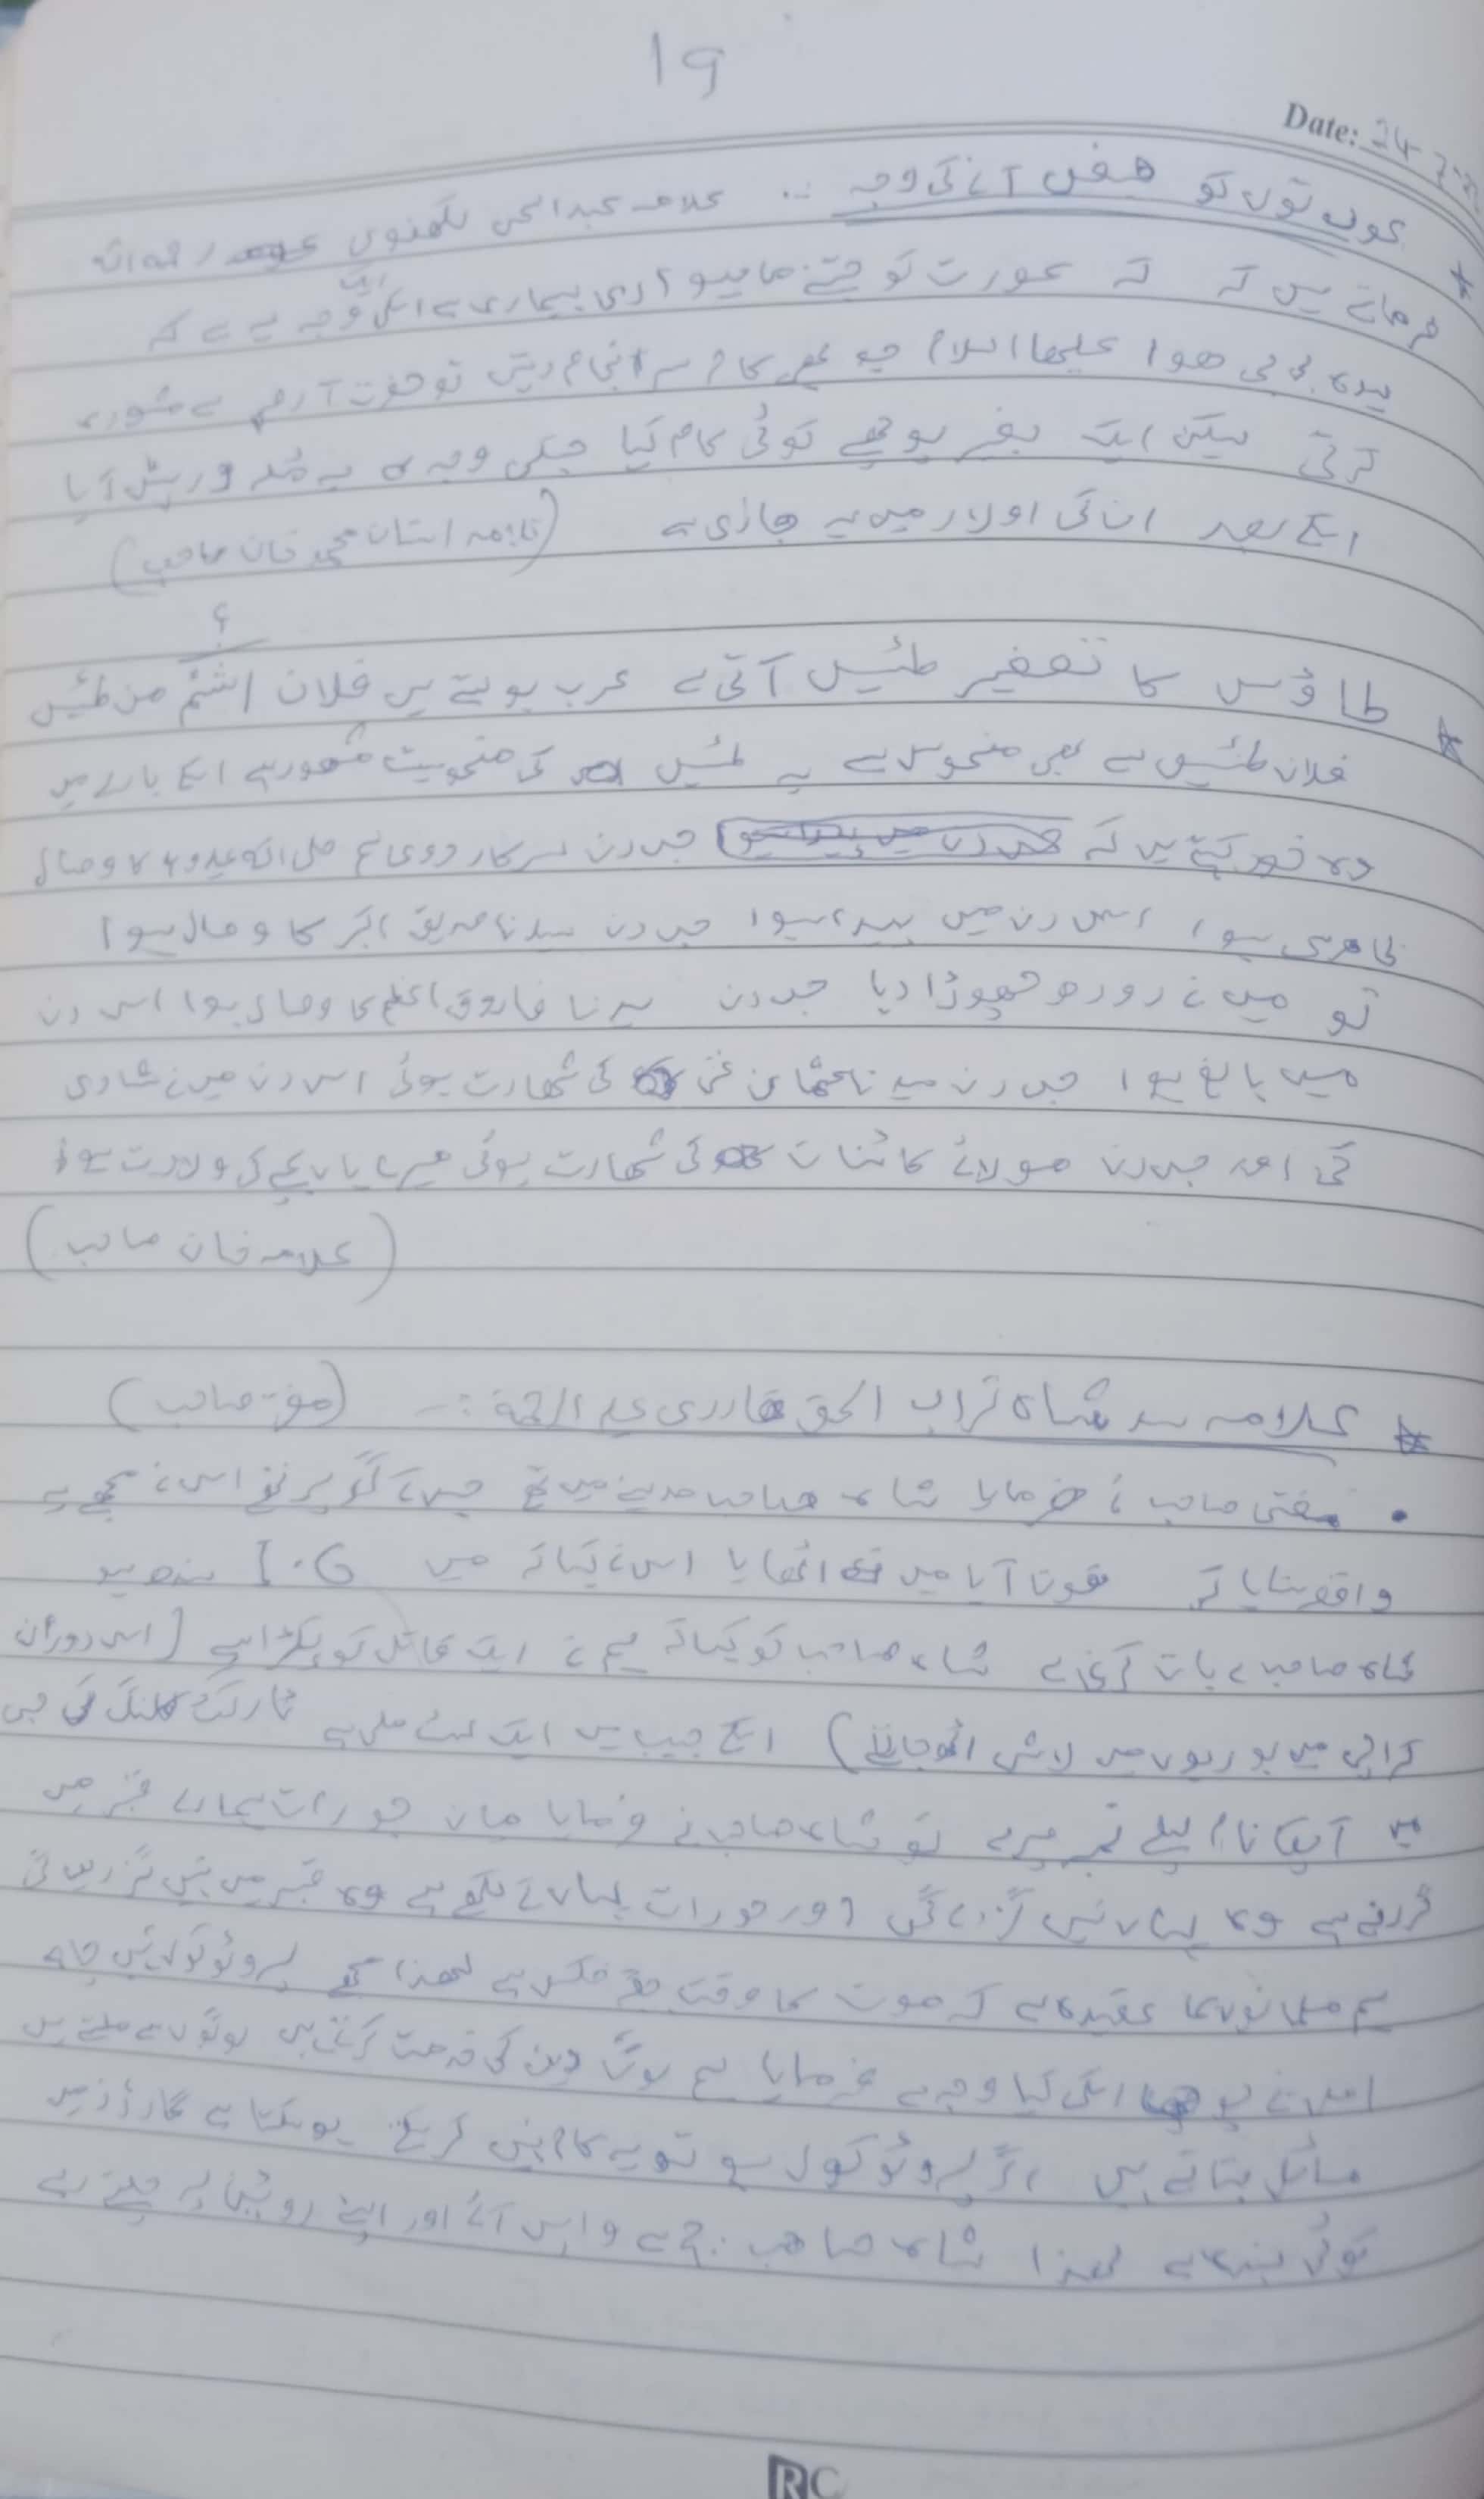 19
Date: 24
عورتوں کو حیض آنے کی وجہ :. علامہ عبدالحی لکھنوی رحمہ اللہ
فرماتے ہیں کہ کہ عورت کو جتنے ماہیواری بیماری ہے اسکی ایک وجہ یہ ہے کہ
سیدہ بی بی حوا علیھا السلام جو بھی کام سر انجام دیتں تو حضرت آدم سے مشورہ
کرتی لیکن ایک بغیر پوچھے کوئی کام کیا جسکی وجہ یہ در پیش آیا
اسکے بعد ان کی اولاد میں یہ جاری ہے (استاد محمد خان صاحب)
طاؤس کا تصغیر طئیس آتی ہے عرب بولتے ہیں فلان اشئم من طئیس
فلاں طئیس سے بھی منحوس ہے یہ طئیس کی منحوسیت مشہور ہے اسکے بارے میں
وہ خود کہتے ہیں کہ جس دن سرکار دو عالم صلی اللہ علیہ کا وصال
ظاھری ہوا اس دن میں پیدا ہوا جس دن سیدنا صدیق اکبر کا وصال ہوا
تو میں نے دودھ چھوڑا دیا جس دن سیدنا فاروق اعظم کا وصال ہوا اس دن
میں بالغ ہوا جس دن سیدنا عثمان غنی کی شھادت ہوئی اس دن میں نے شادی
کی اور جس دن مولائے کائنات کی شھادت ہوئی میرے ہاں بچے کی ولادت ہوئی
(علامہ خان صاحب)
علامہ سید شاہ تراب الحق قادری علیہ الرحمۃ :- (مفتی صاحب)
• مفتی صاحب نے فرمایا شاہ صاحب مدینے میں تھے جس کے گھر پر تھے اس نے مجھے یہ
واقعہ بتایا کہ فون آیا میں نے اٹھایا اس نے کہا کہ میں I.G سندھ ہو
شاہ صاحب سے بات کرنی ہے شاہ صاحب کو کہا کہ ہم نے ایک قاتل کو پکڑا ہے (اس دوران
کراچی میں بوریوں میں لاش) اسکے جیب میں ایک لسٹ ملی ہے ٹارگٹ کلنگ کی جس
میں آپکا نام پہلے نمبر پر ہے تو شاہ صاحب نے فرمایا میاں جو رات ہمارے قبر میں
گزرنی ہے وہ یہاں نہیں گزرے گی اور جو رات یہاں لکھی ہے وہ قبر میں نہیں
ہم مسلمانوں کا عقیدہ ہے کہ موت کا وقت فکس ہے لھذا مجھے پروٹوکول نہیں چاہے
اس نے پوچھا اسکی کیا وجہ ہے فرمایا ہم لوگ دین کی خدمت کرتے ہیں لوگوں سے ملتے ہیں
مسائل بتاتے ہیں اگر پروٹوکول ہے تو یہ کام نہیں کر سکے ہو سکتا ہے گارڈز میں
کوئی بندہ ہے لھذا شاہ صاحب واپس آئے اور اپنے روٹین پہ چلتے رہے
RC